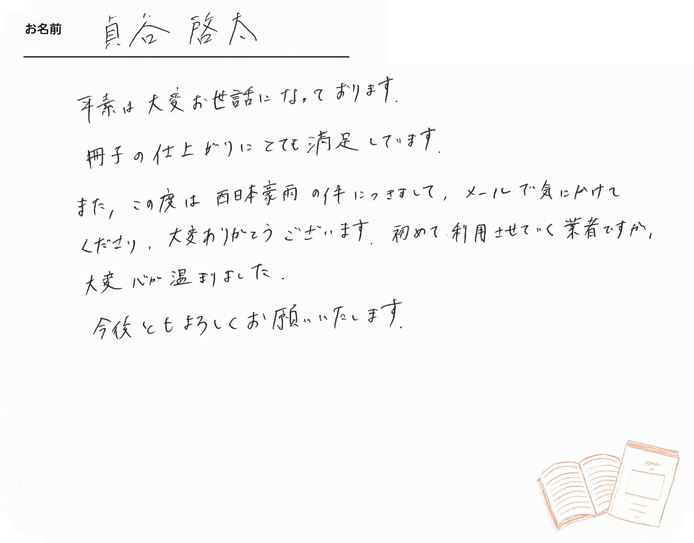 お名前 貞谷 啓太
平素は大変お世話になっております.
冊子の仕上がりにとても満足しています.
また, この度は西日本豪雨の件につきまして, メールで気にかけて
くださり, 大変ありがとうございます. 初めて利用させていく業者ですが,
大変心が温まりました.
今後ともよろしくお願いいたします.